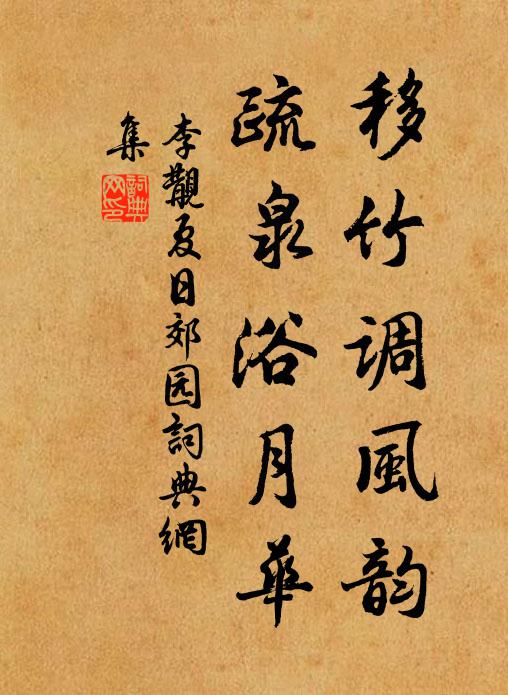 移竹调風韵
疏泉浴月華
李觀夏日郊园詞典網
集
詞典
网印